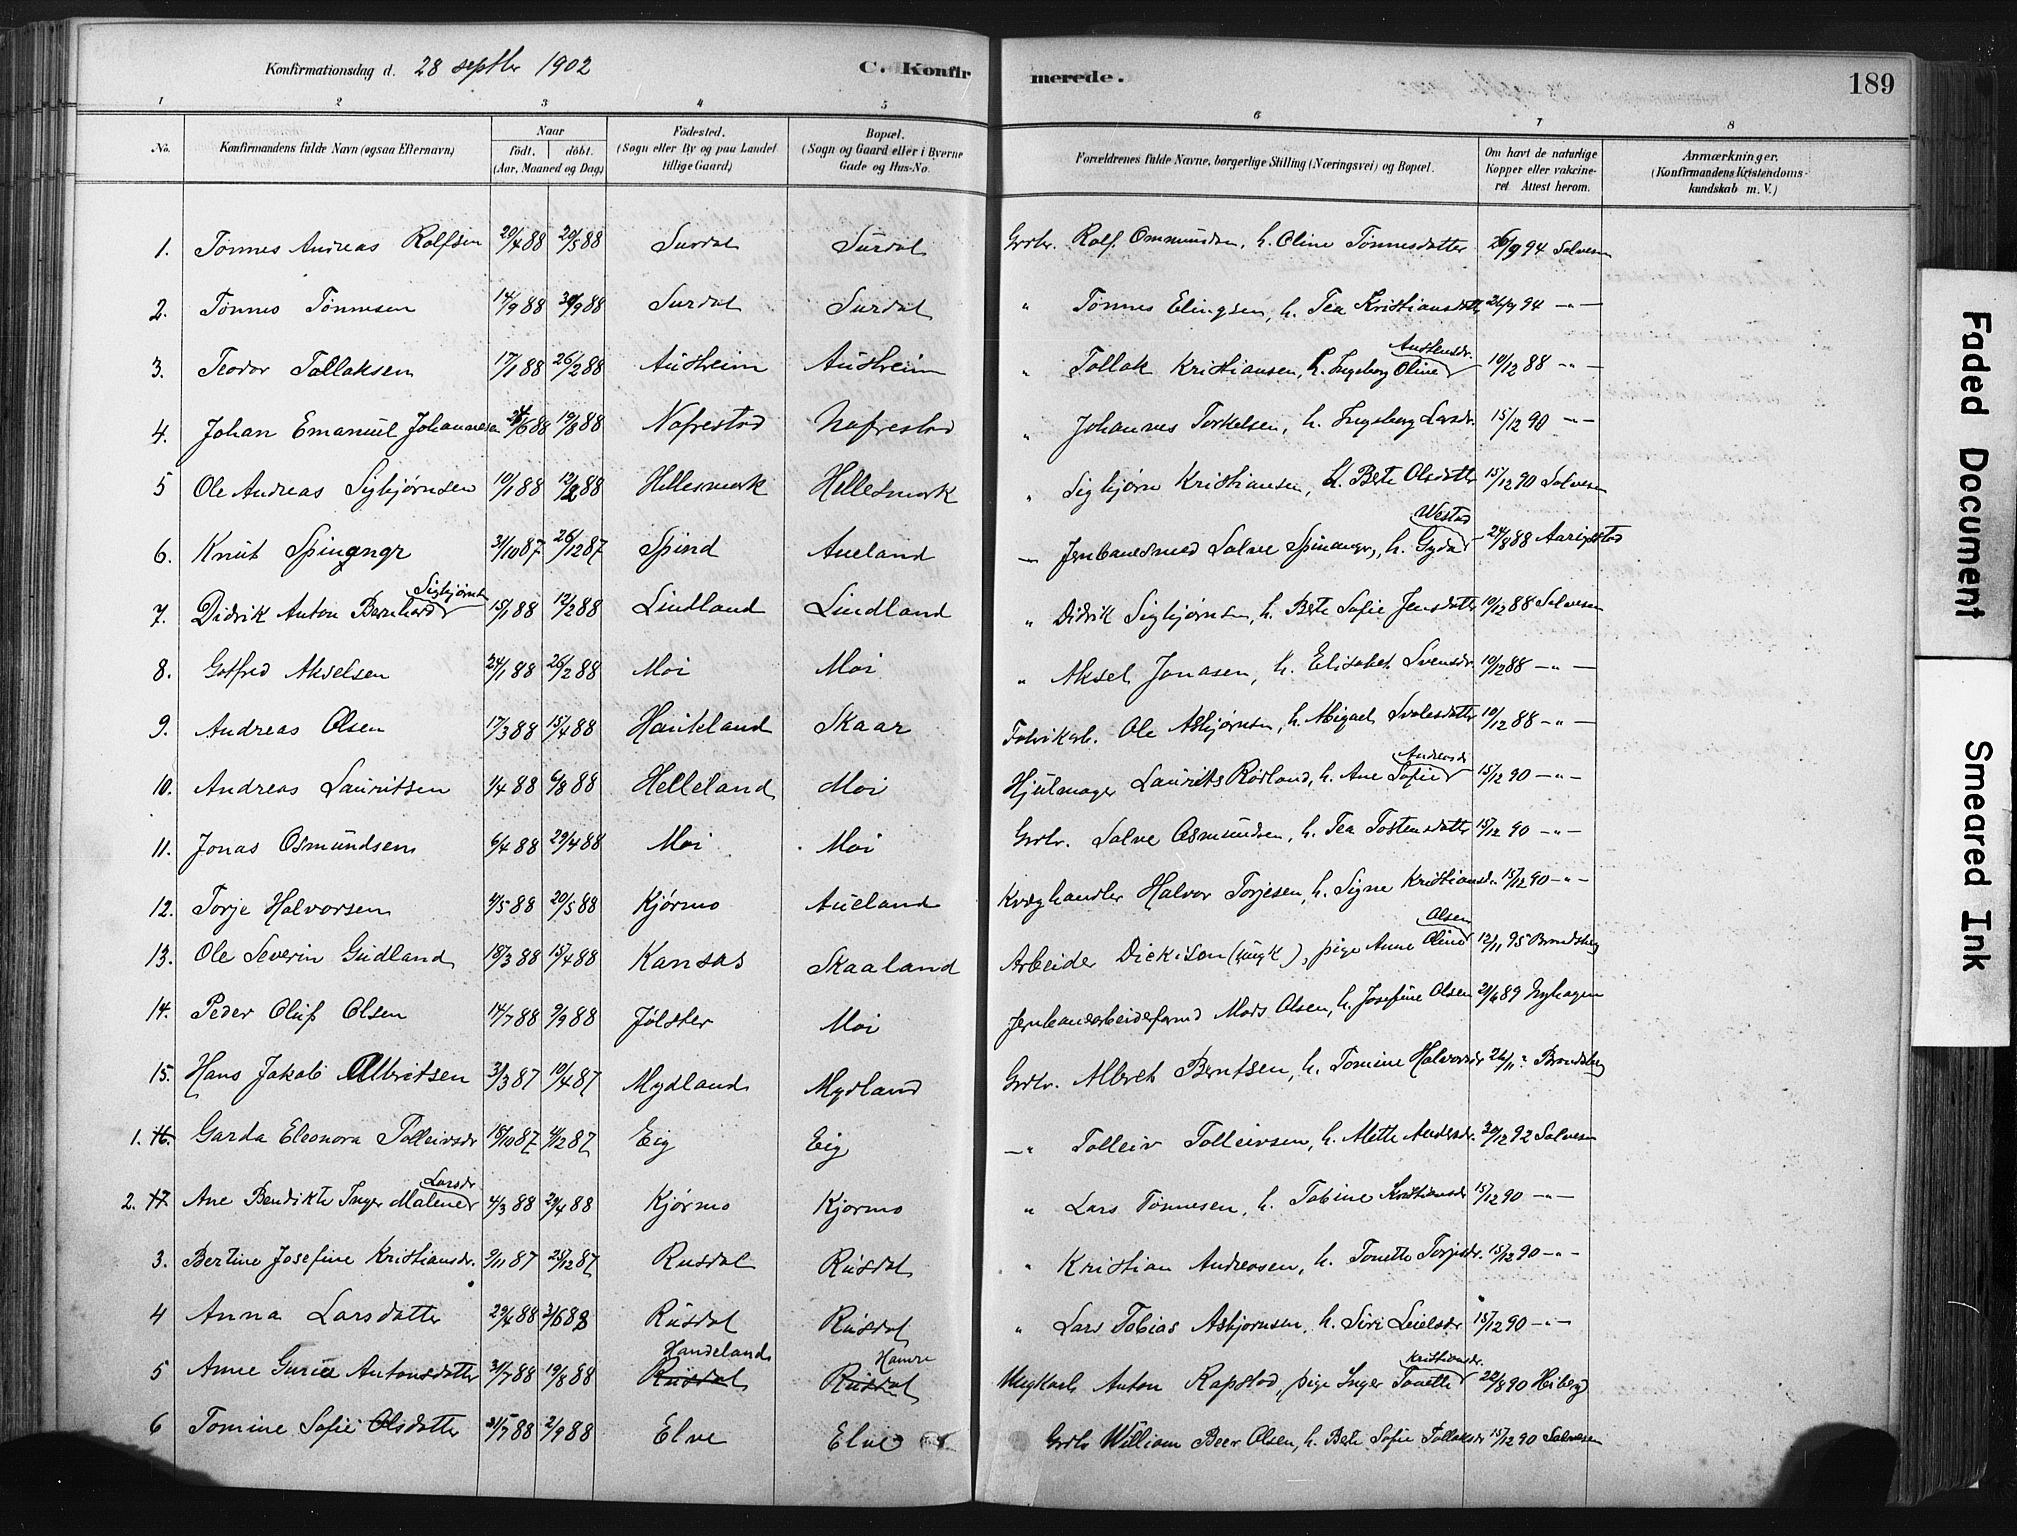 Konfirmationsdag d. 28 septbr 1902 C. Konfirmerede. 189
1 2 3 4 5 6 7 8
No. Konfirmandens fulde Navn (ogsaa Efternavn) Naar født. døbt. (Aar, Maaned og Dag) Fødested. (Sogn eller By og paa Landet tillige Gaard) Bopæl. (Sogn og Gaard eller i Byerne Gade og Hus-No. Forældrenes fulde Navne, borgerlige Stilling (Næringsvei) og Bopæl. Om havt de naturlige Kopper eller vakcineret. Attest herom. Anmærkninger. (Konfirmandens Kristendomskundskab m. V.)
1. Tønnes Andreas Rolfsen 20/4 88 20/5 88 Surdal Surdal Grdbr. Rolf Ommundsen, h. Oline Tønnesdatter 26/9 94 Salvesen
2. Tønnes Tønnesen 14/9 88 30/9 88 Surdal Surdal " Tønnes Elingsen, h. Tea Kristiansdatter 26/9 94 -"-
3. Teodor Tollaksen 17/1 88 26/2 88 Austheim Austheim " Tollak Kristiansen, h. Ingeborg Oline Austensdr. 10/12 88 -"-
4. Johan Emanuel Johannesen 24/6 88 19/8 88 Nafrestad Nafrestad " Johannes Torkelsen, h. Ingeborg Larsdr. 15/12 90 -"-
5 Ole Andreas Sigbjørnsen 10/1 88 12/2 88 Hellesmark Hellesmark " Sigbjørn Kristiansen, h. Berte Olsdatter 15/12 90 Salvesen
6. Knut Spinangr 31/10 87 26/12 87 Spind Aueland — Jernbanesmed Salve Spinangr, h. Gyda Westad 24/8 88 Aarigstad
7. Didrik Anton Bernhard Sigbjørnsen 15/1 88 12/2 88 Lindland Lindland " Didrik Sigbjørnsen, h. Berte Sofie Jensdatter 10/12 88 Salvesen
8. Gotfred Akselsen 24/1 88 26/2 88 Moi Moi " Aksel Jonasen, h. Elisabet Svensdr. 10/12 88 -"-
9. Andreas Olsen 17/3 88 15/4 88 Haukland Skaar Fabrikarb. Ole Asbjørnsen, h. Abigael Svalesdatter 10/12 88 -"-
10. Andreas Lauritsen 1/4 88 6/8 88 Helleland Moi Hjulmager Laurits Rødland, h. Ane Sofie Andreasdr 15/12 90 -"-
11. Jonas Osmundsen 6/4 88 29/4 88 Moi Moi Grdbr. Salve Osmundsen, h. Tea Tostensdatter 15/12 90 -"-
12. Torje Halvorsen 4/5 88 20/5 88 Kjørmo Aueland Kvæghandler Halvor Torjesen, h. Signe Kristiansdr. 15/12 90 -"-
13. Ole Severin Gudland 18/3 88 15/4 88 Kansas Skaaland Arbeider Dickison (ungk), pige Anne Oline Olsen 12/11 95 Brandsberg
14. Peder Oluf Olsen 14/7 88 9/9 88 Jølster Moi Jernbanearbeiderformd Mads Olsen, h. Josefine Olsen 21/6 89 Nyhagen
15. Hans Jakob Albretsen 3/3 87 10/4 87 Mydland Mydland Grdbr. Albret Berntsen, h. Tomine Halvorsdr 26/11 " Brandsberg
1. 16. Garda Eleonora Tolleivsdr 18/10 87 4/12 87 Eig Eig -"- Tolleiv Tolleivsen, h. Alette Andersdr. 30/12 92 Salvesen
2. 17. Ane Bendikte Inger Malene Larsdr 4/3 88 29/4 88 Kjørmo Kjørmo " Lars Tønnesen, h. Tobine Kristiansdr 15/12 90 -"-
3. Bertine Josefine Kristiansdr. 9/11 87 25/12 87 Rusdal Rusdal " Kristian Andreasen, h. Tonette Torjesdr. 15/12 90 -"-
4 Anna Larsdatter 29/4 88 3/6 88 Rusdal Rusdal " Lars Tobias Asbjørnsen, h. Siri Leielsdr 15/12 90 -"-
5 Anne Gurine Antonsdatter 31/7 88 19/8 88 Rusdal Handeland Rusdal Hamre Ungkarl Anton Rapstad, pige Inger Tonette Kristiansdr. 22/8 90 Heiberg
6 Tomine Sofie Olsdatter 31/7 88 2/9 88 Elve Elve Grdbr William Beer Olsen, h. Berte Sofie Tollaksdr 15/12 90 Salvesen
Faded Document
Smeared Ink